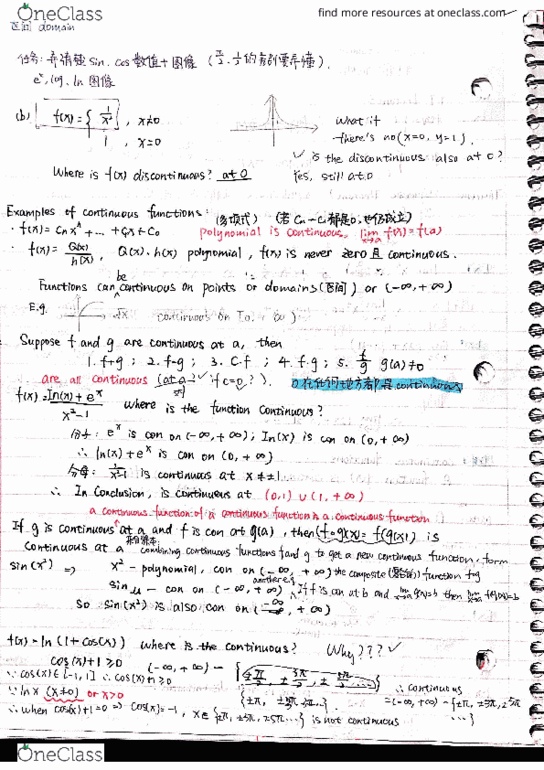 OneClass
find more resources at oneclass.com
区间 domain
任务: 弄清楚 sin, cos 数值+图像
e^x, log, ln 图像
(b) f(x) = { 1/x² , x≠0
1 , x=0
what if
there's no (x=0, y=1).
is the discontinuous also at 0?
Yes, still at 0
Where is f(x) discontinuous? at 0
Examples of continuous functions: (多项式)
· f(x) = Cnx^n + ... + C1x + C0 polynomial is continuous, lim f(x) = f(a)
· f(x) = Q(x)/h(x), Q(x). h(x) polynomial, h(x) is never zero 且 continuous.
Functions can be continuous on points or domains (区间) or (-∞, +∞)
E.g. √x continuous on [0, ∞)
Suppose f and g are continuous at a, then
1. f+g ; 2. f-g ; 3. C·f ; 4. f·g ; 5. f/g g(a)≠0
are all continuous (at a) if c=0?). 0在任何地方都是continuous
f(x) = ln(x) + e^x / x²-1 where is the function continuous?
分子: e^x is con on (-∞, +∞) ; ln(x) is con on (0, +∞)
∴ ln(x)+e^x is con on (0, +∞)
分母: 1/x²-1 is continuous at x ≠ ±1
∴ In conclusion, is continuous at (0,1) ∪ (1, +∞)
a continuous function of a continuous function is a continuous function
If g is continuous at a and f is con at g(a), then (f∘g)(x) = f(g(x)) is
continuous at a combining continuous functions f and g to get a new continuous function, form
sin(x²) ⇒ x² - polynomial, con on (-∞, +∞) the composite function f∘g
sin u - con on (-∞, +∞) if f is con at b and lim g(x)=b then lim f(g(x))=b
So sin(x²) is also con on (-∞, +∞)
f(x) = ln(1+cos(x)) where is the continuous? Why??? ✓
cos(x)+1≥0 (-∞, +∞) -
∵ cos(x)∈[-1,1] ∴ cos(x)+1≥0 {±π, ±3π, ...} ∴ continuous
∵ ln x (x≠0) or x>0 = (-∞, +∞) - {±π, ±3π, ±5π ...}
∴ when cos(x)+1=0 ⇒ cos(x)=-1, x∈{±π, ±3π, ±5π...} is not continuous
OneClass